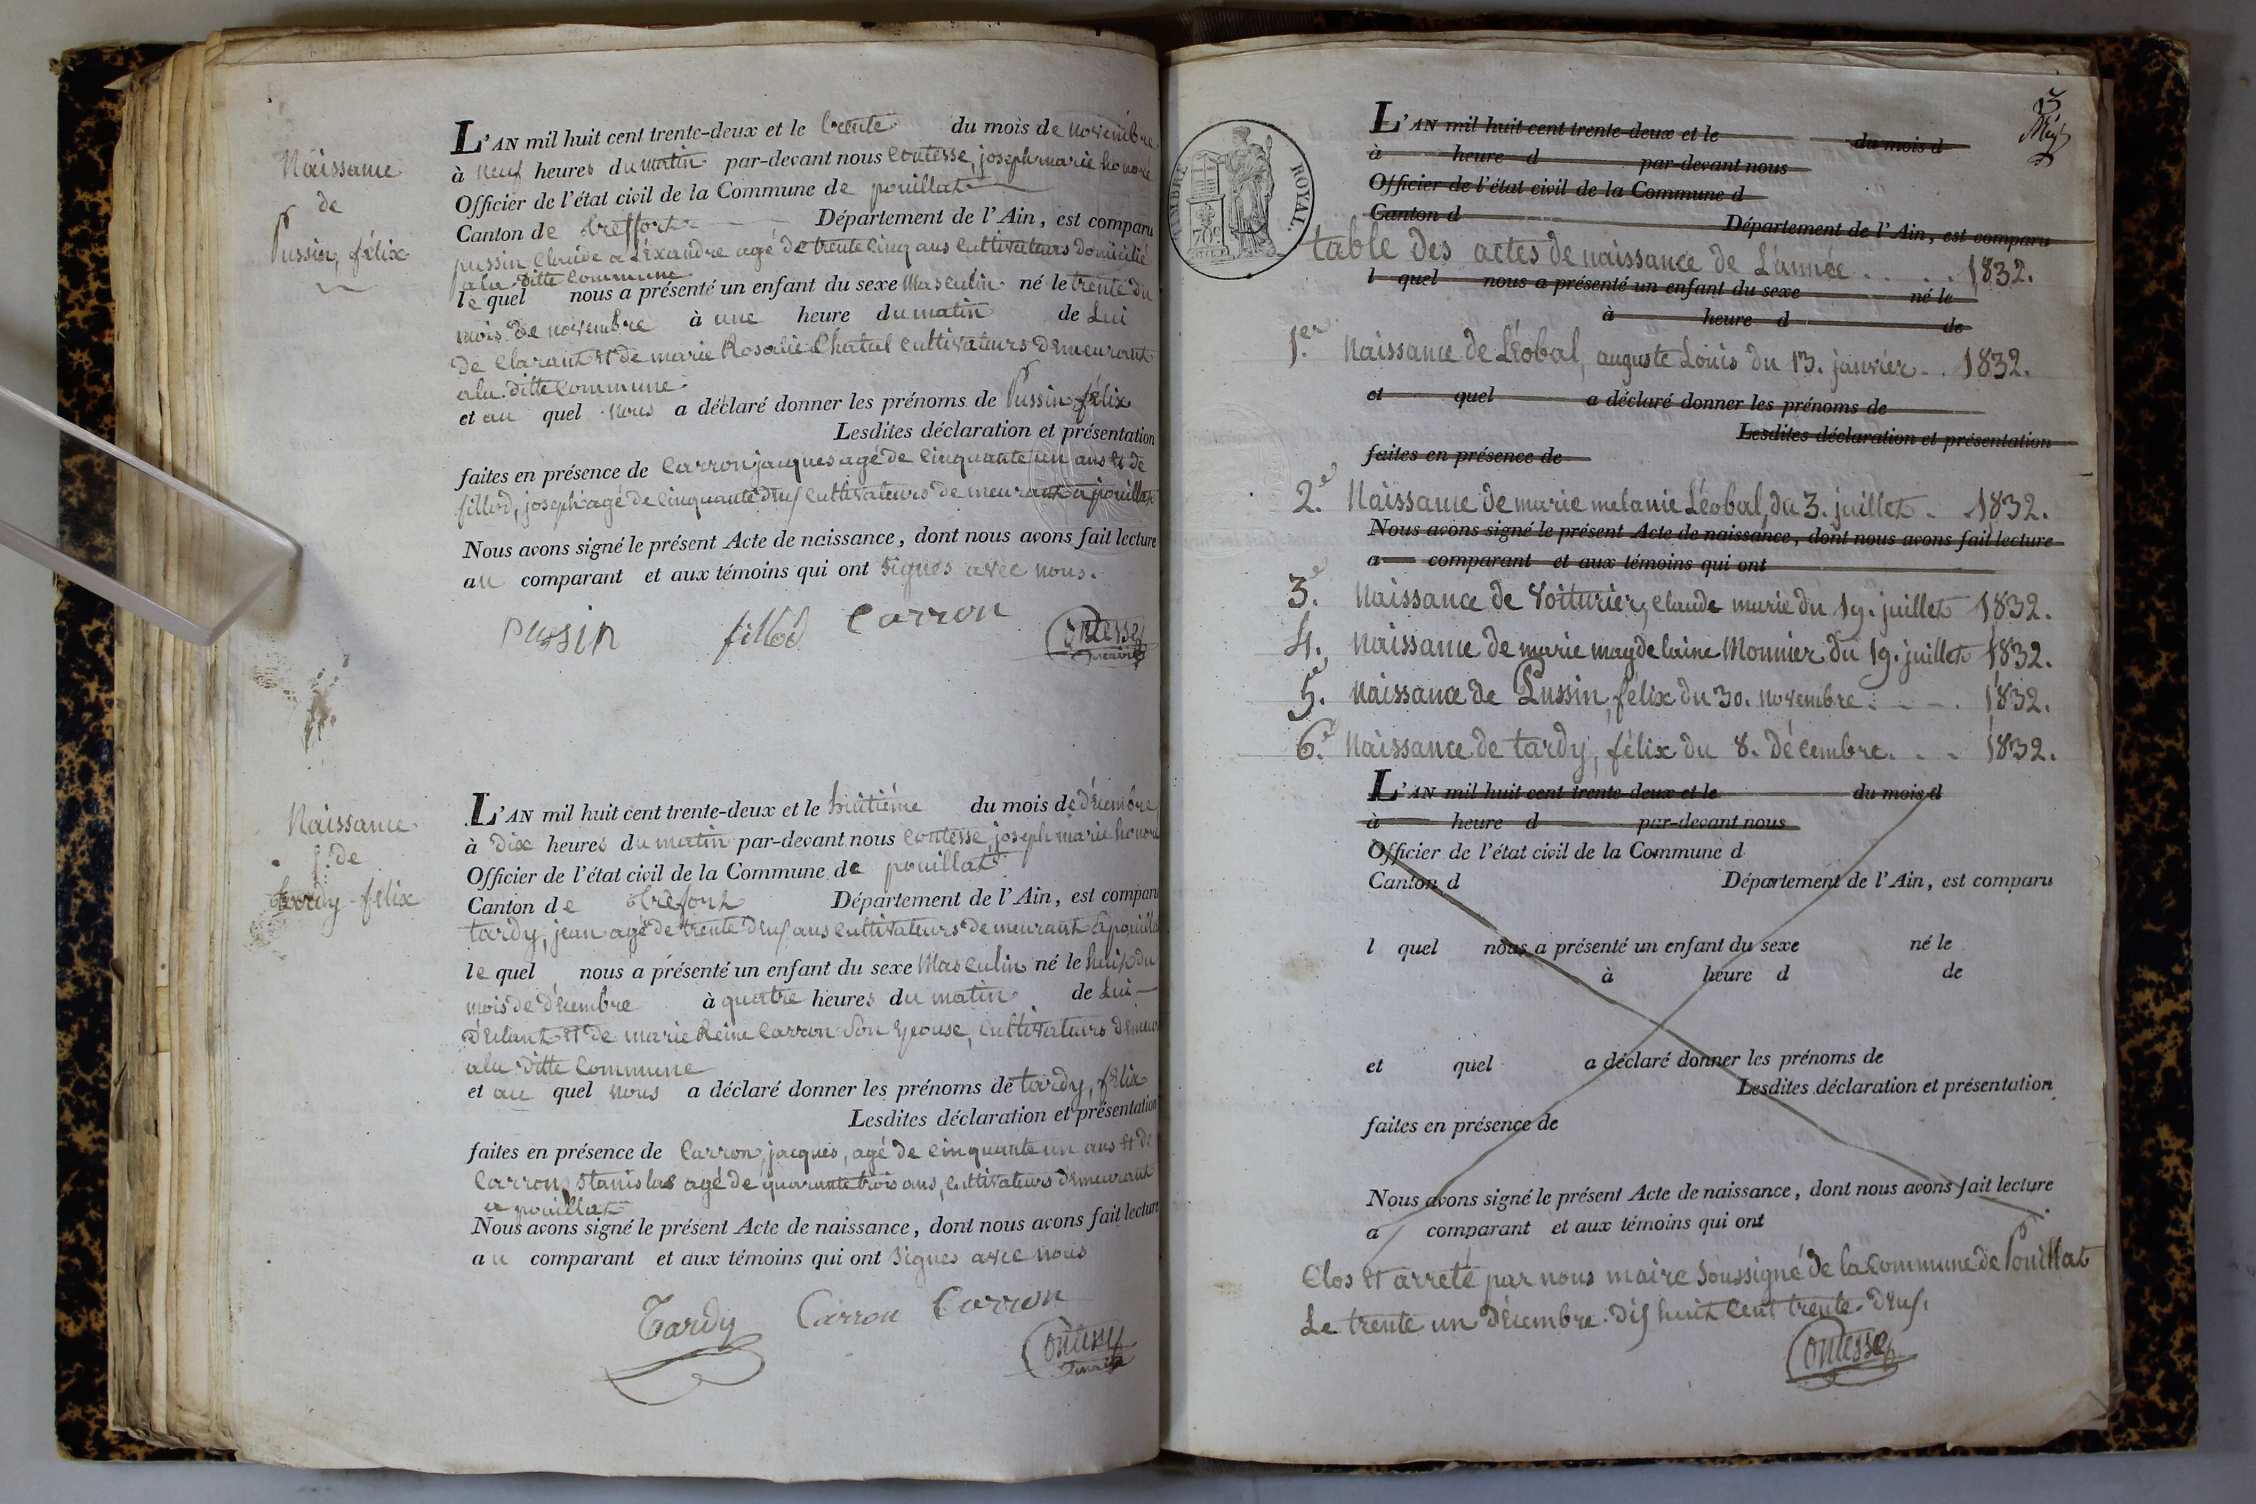 Naissance
de
Pussin, félix
L'AN mil huit cent trente-deux et le trente du mois de novembre
à neuf heures du matin par-devant nous Contesse, joseph marie honoré
Officier de l'état civil de la Commune de pouillat
Canton de treffort Département de l'Ain, est comparu
pussin Claude aléxandre agé de trente cinq ans cultivateurs domicilié
a la ditte commune
le quel nous a présenté un enfant du sexe Masculin né le trente du
mois de novembre à une heure du matin de Lui
de clarant et de marie Rosalie Chatal cultivateurs demeurant
a la ditte commune
et au quel nous a déclaré donner les prénoms de Pussin félix
Lesdites déclaration et présentation
faites en présence de Carron jacques agé de cinquante un ans et de
fillod, joseph agé de cinquante deuf cultivateurs demeurant a pouillat
Nous avons signé le présent Acte de naissance, dont nous avons fait lecture
au comparant et aux témoins qui ont signés avec nous.
pussin fillod Carron
Contesse
maire
Naissance
de
tardy félix
L'AN mil huit cent trente-deux et le huitiéme du mois de décembre
à dix heures du matin par-devant nous Contesse, joseph marie honoré
Officier de l'état civil de la Commune de pouillat
Canton de trefort Département de l'Ain, est comparu
tardy, jean agé de trente deuf ans cultivateurs demeurant a pouillat
le quel nous a présenté un enfant du sexe Masculin né le huit du
mois de décembre à quatre heures du matin de Lui
déclant et de marie Reine Carron son epouse, cultivateurs
a la ditte commune
et au quel nous a déclaré donner les prénoms de tardy, félix
Lesdites déclaration et présentation
faites en présence de Carron, jacques, agé de cinquante un ans et de
Carron Stanislas agé de quarante trois ans, cultivateurs demeurant
a pouillat
Nous avons signé le présent Acte de naissance, dont nous avons fait lecture
au comparant et aux témoins qui ont signes avec nous
Tardy Carron Carron
Contesse
maire
TIMBRE ROYAL.
L'AN mil huit cent trente-deux et le du mois d
à heure d par-devant nous
Officier de l'état civil de la Commune d
Canton d Département de l'Ain, est comparu
table des actes de naissance de L'année . . . . . 1832.
l quel nous a présenté un enfant du sexe né le
à heure d de
1.er Naissance de Léobal, auguste Louis du 13. janvier . . 1832.
et quel a déclaré donner les prénoms de
Lesdites déclaration et présentation
faites en présence de
2.e Naissance de marie melanie Léobal, du 3. juillet . 1832.
Nous avons signé le présent Acte de naissance, dont nous avons fait lecture
a comparant et aux témoins qui ont
3.e Naissance de Voiturier, claude marie du 19. juillet 1832.
4. Naissance de marie magdelaine Monnier du 19. juillet 1832.
5.e Naissance de Pussin, félix du 30. novembre . . . . 1832.
6.e Naissance de tardy, félix du 8. décembre . . . 1832.
L'AN mil huit cent trente-deux et le du mois d
à heure d par-devant nous
Officier de l'état civil de la Commune d
Canton d Département de l'Ain, est comparu
l quel nous a présenté un enfant du sexe né le
à heure d de
et quel a déclaré donner les prénoms de
Lesdites déclaration et présentation
faites en présence de
Nous avons signé le présent Acte de naissance, dont nous avons fait lecture
a comparant et aux témoins qui ont
Clos et arreté par nous maire soussigné de la commune de Pouillat
Le trente un décembre dif huit cent trente-deuf.
Contesse